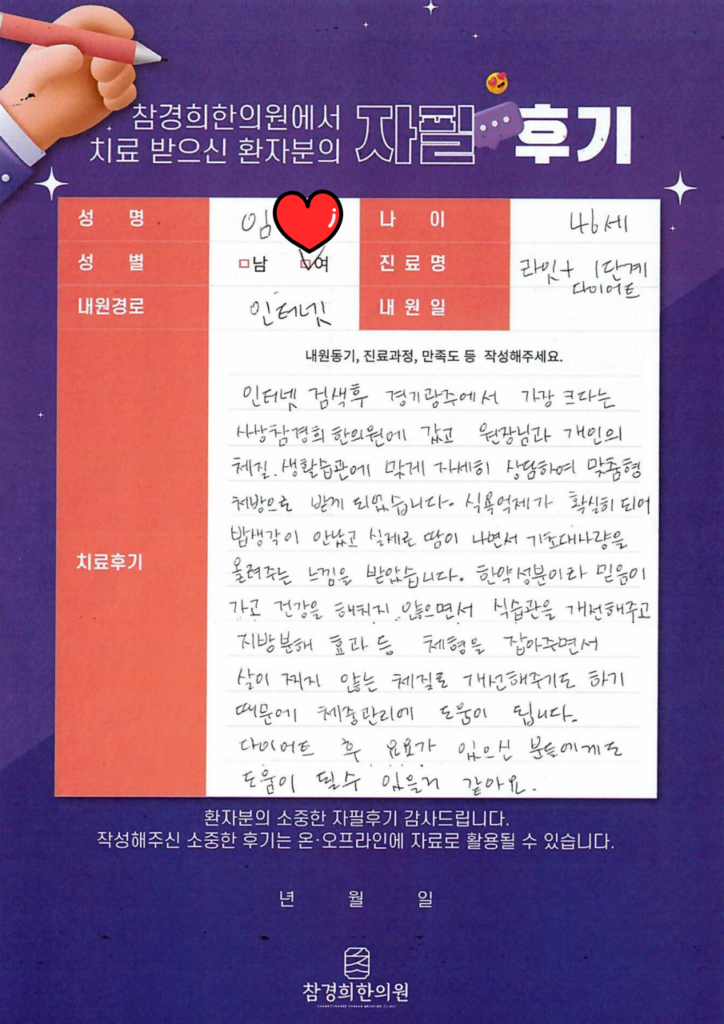 참경희한의원에서
치료 받으신 환자분의 자필 후기
성 명 임 나 이 46세
성 별 □남 □여 진 료 명 라인+ 1단계
다이어트
내원경로 인터넷 내 원 일
내원동기, 진료과정, 만족도 등 작성해주세요.
치료후기
인터넷 검색후 경기광주에서 가장 크다는
사상참경희 한의원에 갔고 원장님과 개인의
체질.생활습관에 맞게 자세히 상담하여 맞춤형
처방으로 받게 되었습니다. 식욕억제가 확실히 되어
밥생각이 안났고 실제로 땀이 나면서 기초대사량을
올려주는 느낌을 받았습니다. 한약성분이라 믿음이
가고 건강을 해치지 않으면서 식습관을 개선해주고
지방분해 효과 등 체형을 잡아주면서
살이 찌지 않는 체질로 개선해주기도 하기
때문에 체중관리에 도움이 됩니다.
다이어트 후 요요가 있으신 분들에게도
도움이 될수 있을거 같아요.
환자분의 소중한 자필후기 감사드립니다.
작성해주신 소중한 후기는 온·오프라인에 자료로 활용될 수 있습니다.
년 월 일
참경희한의원